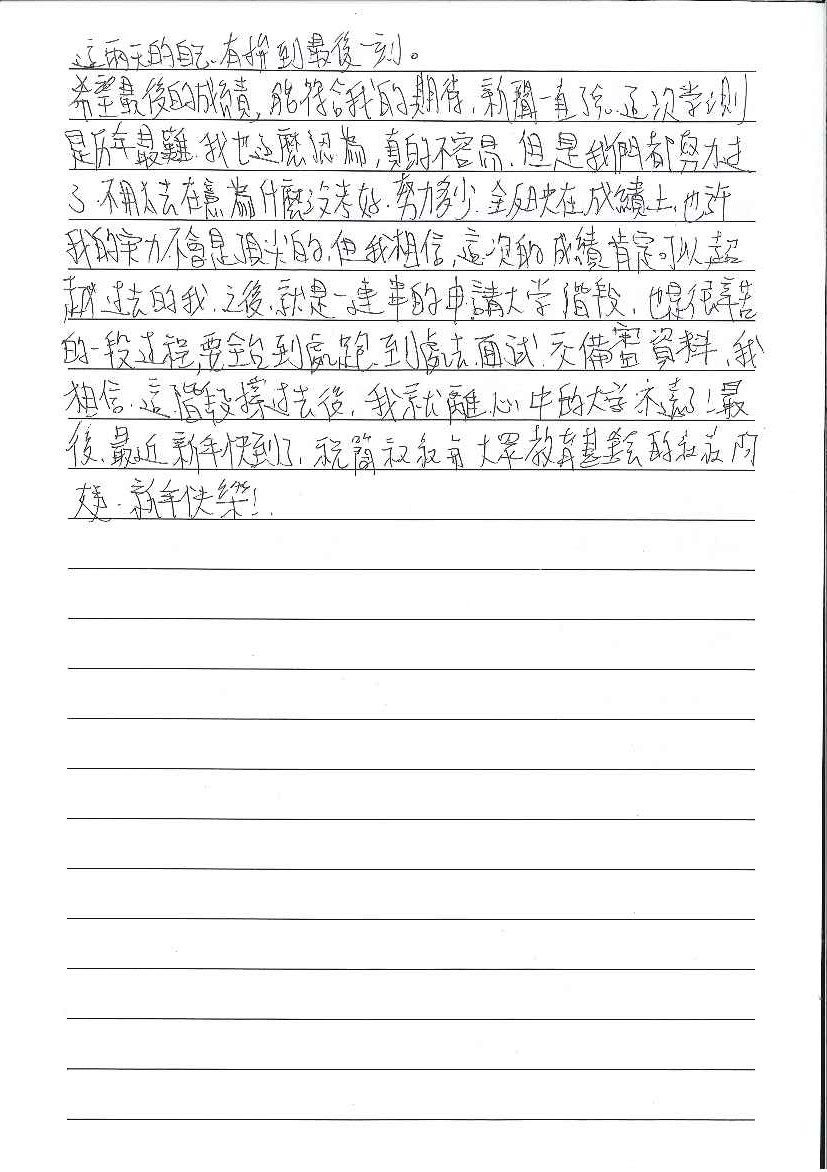 這兩天的自己、有拚到最後一刻。
希望最後的成績,能符合我的期待,新聞一直說,這次学測
是历年最難,我也这麼認為,真的不容易,但是我們都努力过
了,不用太去在意為什麼没考好,努力多少,全反映在成績上,也許
我的实力不會是頂尖的,但我相信,這次的成績肯定可以超
越过去的我,之後,就是一連串的申請大学階段,也是很辛苦
的一段过程,要全台到處跑,到處去面試,交備審資料,我
相信,這階段撑过去後,我就離心中的大学不遠了!最
後,最近新年快到了,祝簡叔叔与大眾教育基金会的叔叔阿
姨,新年快樂!